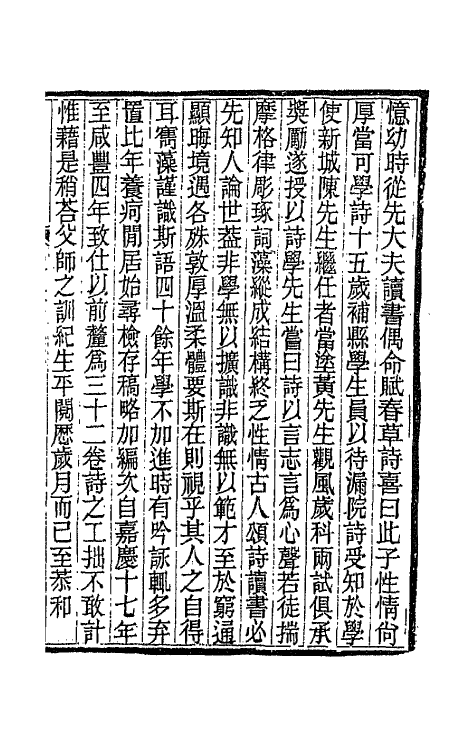 憶幼時從先大夫讀書偶命賦春草詩喜曰此子性情尙
厚當可學詩十五歲補縣學生員以待漏院詩受知於學
使新城陳先生繼任者當塗黃先生觀風歲科兩試俱承
奬勵遂授以詩學先生嘗曰詩以言志言爲心聲若徒揣
摩格律彫琢詞藻縱成結構終乏性情古人頌詩讀書必
先知人論世葢非學無以擴識非識無以範才至於窮通
顯晦境遇各殊敦厚溫柔體要斯在則視乎其人之自得
耳雋藻謹識斯語四十餘年學不加進時有吟詠輒多弃
置比年養疴閒居始尋檢存稿略加編次自嘉慶十七年
至咸豐四年致仕以前釐爲三十二卷詩之工拙不敢計
惟藉是稍荅父師之訓紀生平閱歷歲月而已至恭和